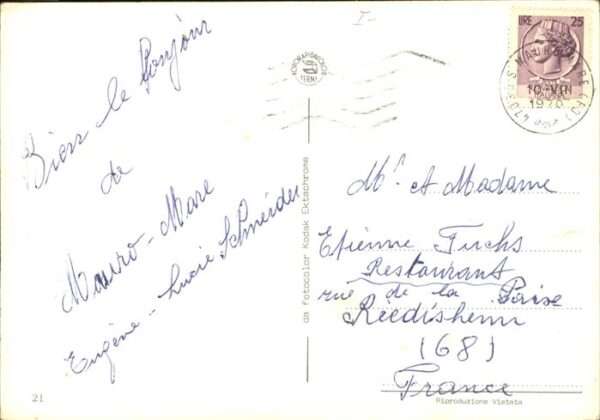 I-
LIRE 25
S. MAURO MARE (FO)
10-VIII
1970
47030
Bien le Bonjour
de
Mauro-Mare
Eugène - Lucie Schneider
21
da fotocolor Kodak Ektachrome
Mr. A Madame
Etienne Fuchs
Restaurant
rue de la Paixe
Riedisheim
(68)
France
Riproduzione Vietata